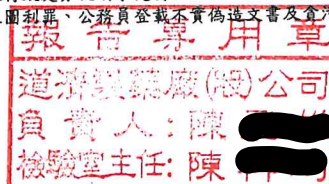 圖利罪、公務員登載不實偽造文書及貪
報告專用章
道濟製藥廠(股)公司
負責人:陳
檢驗室主任:陳